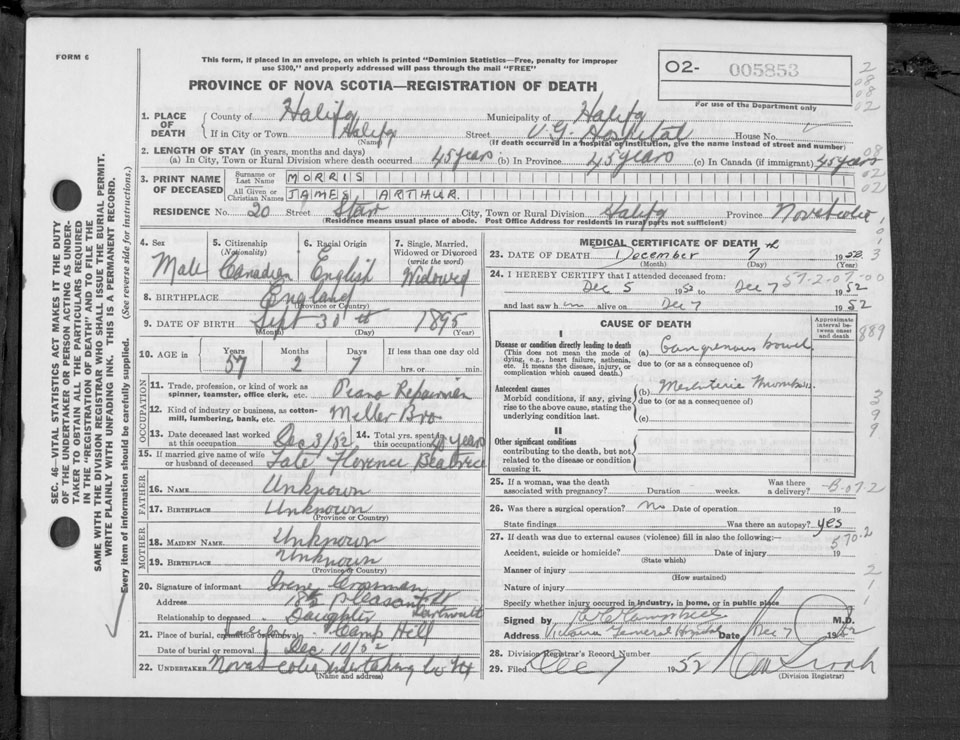 FORM 6
This form, if placed in an envelope, on which is printed "Dominion Statistics—Free, penalty for improper
use $300," and properly addressed will pass through the mail "FREE"
PROVINCE OF NOVA SCOTIA—REGISTRATION OF DEATH
O2- 005853
For use of the Department only
2
08
08
02
1. PLACE OF DEATH
County of Halifax Municipality of Halifax
If in City or Town Halifax Street V.G. Hospital House No.
(Name) (If death occurred in a hospital or institution, give the name instead of street and number)
2. LENGTH OF STAY (in years, months and days)
(a) In City, Town or Rural Division where death occurred 45 years (b) In Province 45 years (c) In Canada (if immigrant) 45 years
08
02
02
3. PRINT NAME OF DECEASED
Surname or Last Name MORRIS
All Given or Christian Names JAMES ARTHUR
RESIDENCE No. 20 Street Starr City, Town or Rural Division Halifax Province Nova Scotia
(Residence means usual place of abode. Post Office Address for residents in rural parts not sufficient)
SEC. 46—VITAL STATISTICS ACT MAKES IT THE DUTY
OF THE UNDERTAKER OR PERSON ACTING AS UNDER-
TAKER TO OBTAIN ALL THE PARTICULARS REQUIRED
IN THE "REGISTRATION OF DEATH" AND TO FILE THE
SAME WITH THE DIVISION REGISTRAR WHO SHALL ISSUE THE BURIAL PERMIT.
WRITE PLAINLY WITH UNFADING INK. THIS IS A PERMANENT RECORD.
Every item of information should be carefully supplied. (See reverse side for instructions.)
4. Sex 5. Citizenship 6. Racial Origin 7. Single, Married,
(Nationality) Widowed or Divorced
(write the word)
Male Canadian English Widowed
8. BIRTHPLACE England
(Province or Country)
9. DATE OF BIRTH Sept 30th 1895
(Month) (Day) (Year)
10. AGE in Years Months Days If less than one day old
57 2 7 hrs. or min.
OCCUPATION
11. Trade, profession, or kind of work as
spinner, teamster, office clerk, etc. Piano Repairmen
12. Kind of industry or business, as cotton-
mill, lumbering, bank, etc. Miller Bro
13. Date deceased last worked at this occupation Dec 3/52 14. Total yrs. spent in this occupation years
15. If married give name of wife
or husband of deceased Late Florence Beatrice
FATHER
16. NAME Unknown
17. BIRTHPLACE Unknown
(Province or Country)
MOTHER
18. MAIDEN NAME Unknown
19. BIRTHPLACE Unknown
(Province or Country)
20. Signature of informant Irene Crossman
Address 18½ Pleasant St
Dartmouth
Relationship to deceased Daughter
21. Place of burial, cremation or removal Camp Hill
Date of burial or removal Dec 10/52
22. UNDERTAKER Nova Scotia Undertaking Co Hfx
(Name and Address)
MEDICAL CERTIFICATE OF DEATH
23. DATE OF DEATH December 7th 1952
(Month) (Day) (Year)
24. I HEREBY CERTIFY that I attended deceased from:
57-2-07-00
Dec 5 1952 to Dec 7 1952
and last saw him alive on Dec 7 1952
CAUSE OF DEATH
Approximate interval between onset and death
889
I
Disease or condition directly leading to death
(This does not mean the mode of
dying, e.g., heart failure, asthenia,
etc. It means the disease, injury, or
complication which caused death.)
(a) Gangrenous bowel
due to (or as a consequence of)
Antecedent causes
Morbid conditions, if any, giving
rise to the above cause, stating the
underlying condition last.
(b) Mesenteric Thrombosis
due to (or as a consequence of)
(c)
3
9
9
II
Other significant conditions
contributing to the death, but not
related to the disease or condition
causing it.
25. If a woman, was the death Was there
associated with pregnancy? Duration weeks. a delivery? -B-07-2
26. Was there a surgical operation? no Date of operation 19
State findings Was there an autopsy? yes
27. If death was due to external causes (violence) fill in also the following:—
570-2
Accident, suicide or homicide? Date of injury 19
(State which)
Manner of injury 2
(How sustained)
Nature of injury 1
Specify whether injury occurred in industry, in home, or in public place 1
Signed by Campbell M.D.
Address Victoria General Hospital Date Dec 7 1952
28. Division Registrar's Record Number
29. Filed Dec 7 1952
(Division Registrar)